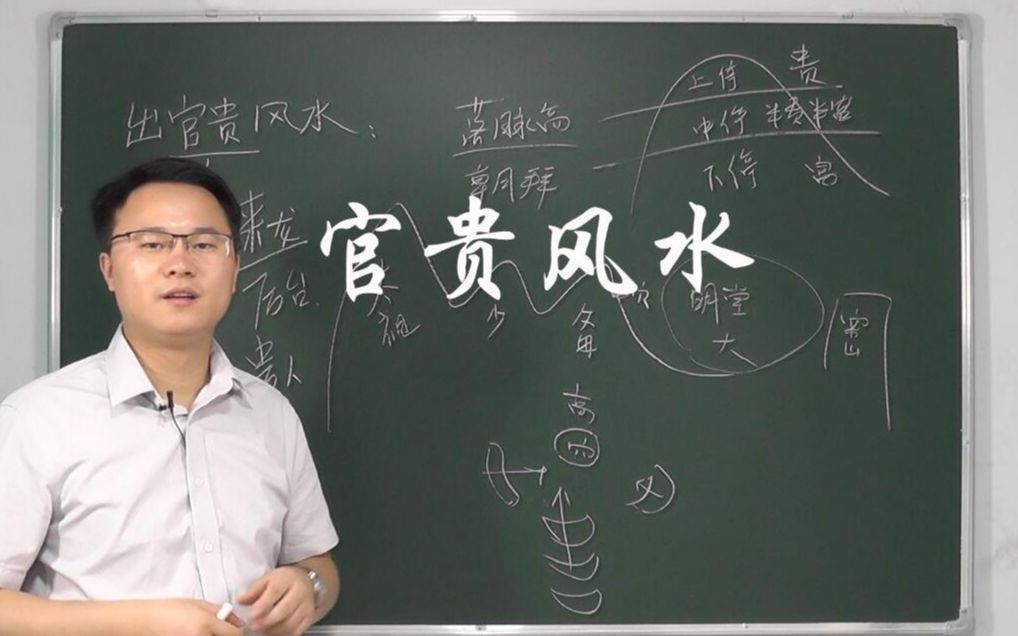 出官贵风水：
落脉高
朝拜
上停 贵
中停 半贵半富
下停 富
来龙
后台
贵人
官贵风水
太祖
少
父母
穴
明堂
大
案山
高
穴